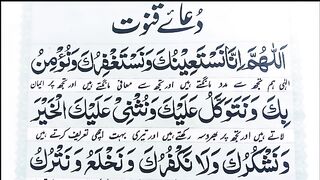 دُعائے قنوت
اَللّٰهُمَّ اِنَّا نَسْتَعِيْنُكَ وَنَسْتَغْفِرُكَ وَنُؤْمِنُ
الٰہی ہم تجھ سے مدد مانگتے ہیں اور تجھ سے معافی مانگتے ہیں اور تجھ پر ایمان
بِكَ وَنَتَوَكَّلُ عَلَيْكَ وَنُثْنِيْ عَلَيْكَ الْخَيْرَ
لاتے ہیں اور تجھ پر بھروسہ رکھتے ہیں اور تیری بہت اچھی تعریف کرتے ہیں
وَنَشْكُرُكَ وَلَا نَكْفُرُكَ وَنَخْلَعُ وَنَتْرُكُ